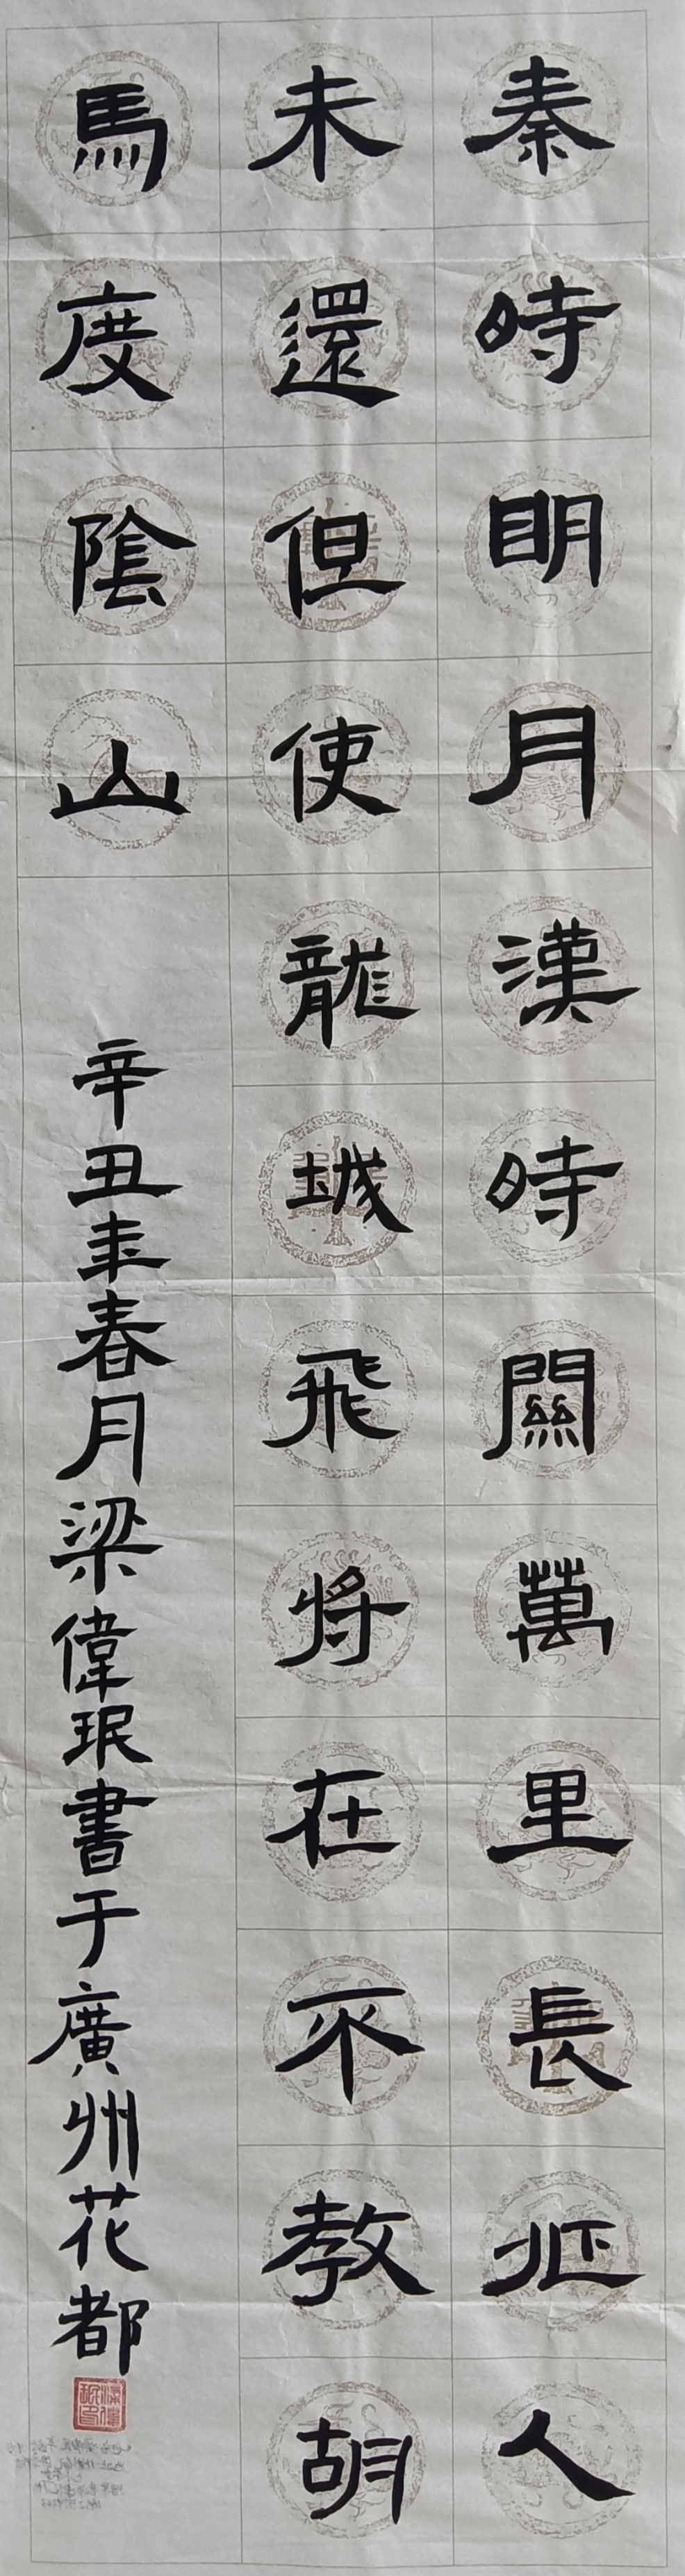 秦時明月漢時關萬里長征人
未還但使龍城飛將在不教胡
馬度陰山
辛丑年春月梁偉珉書于廣州花都